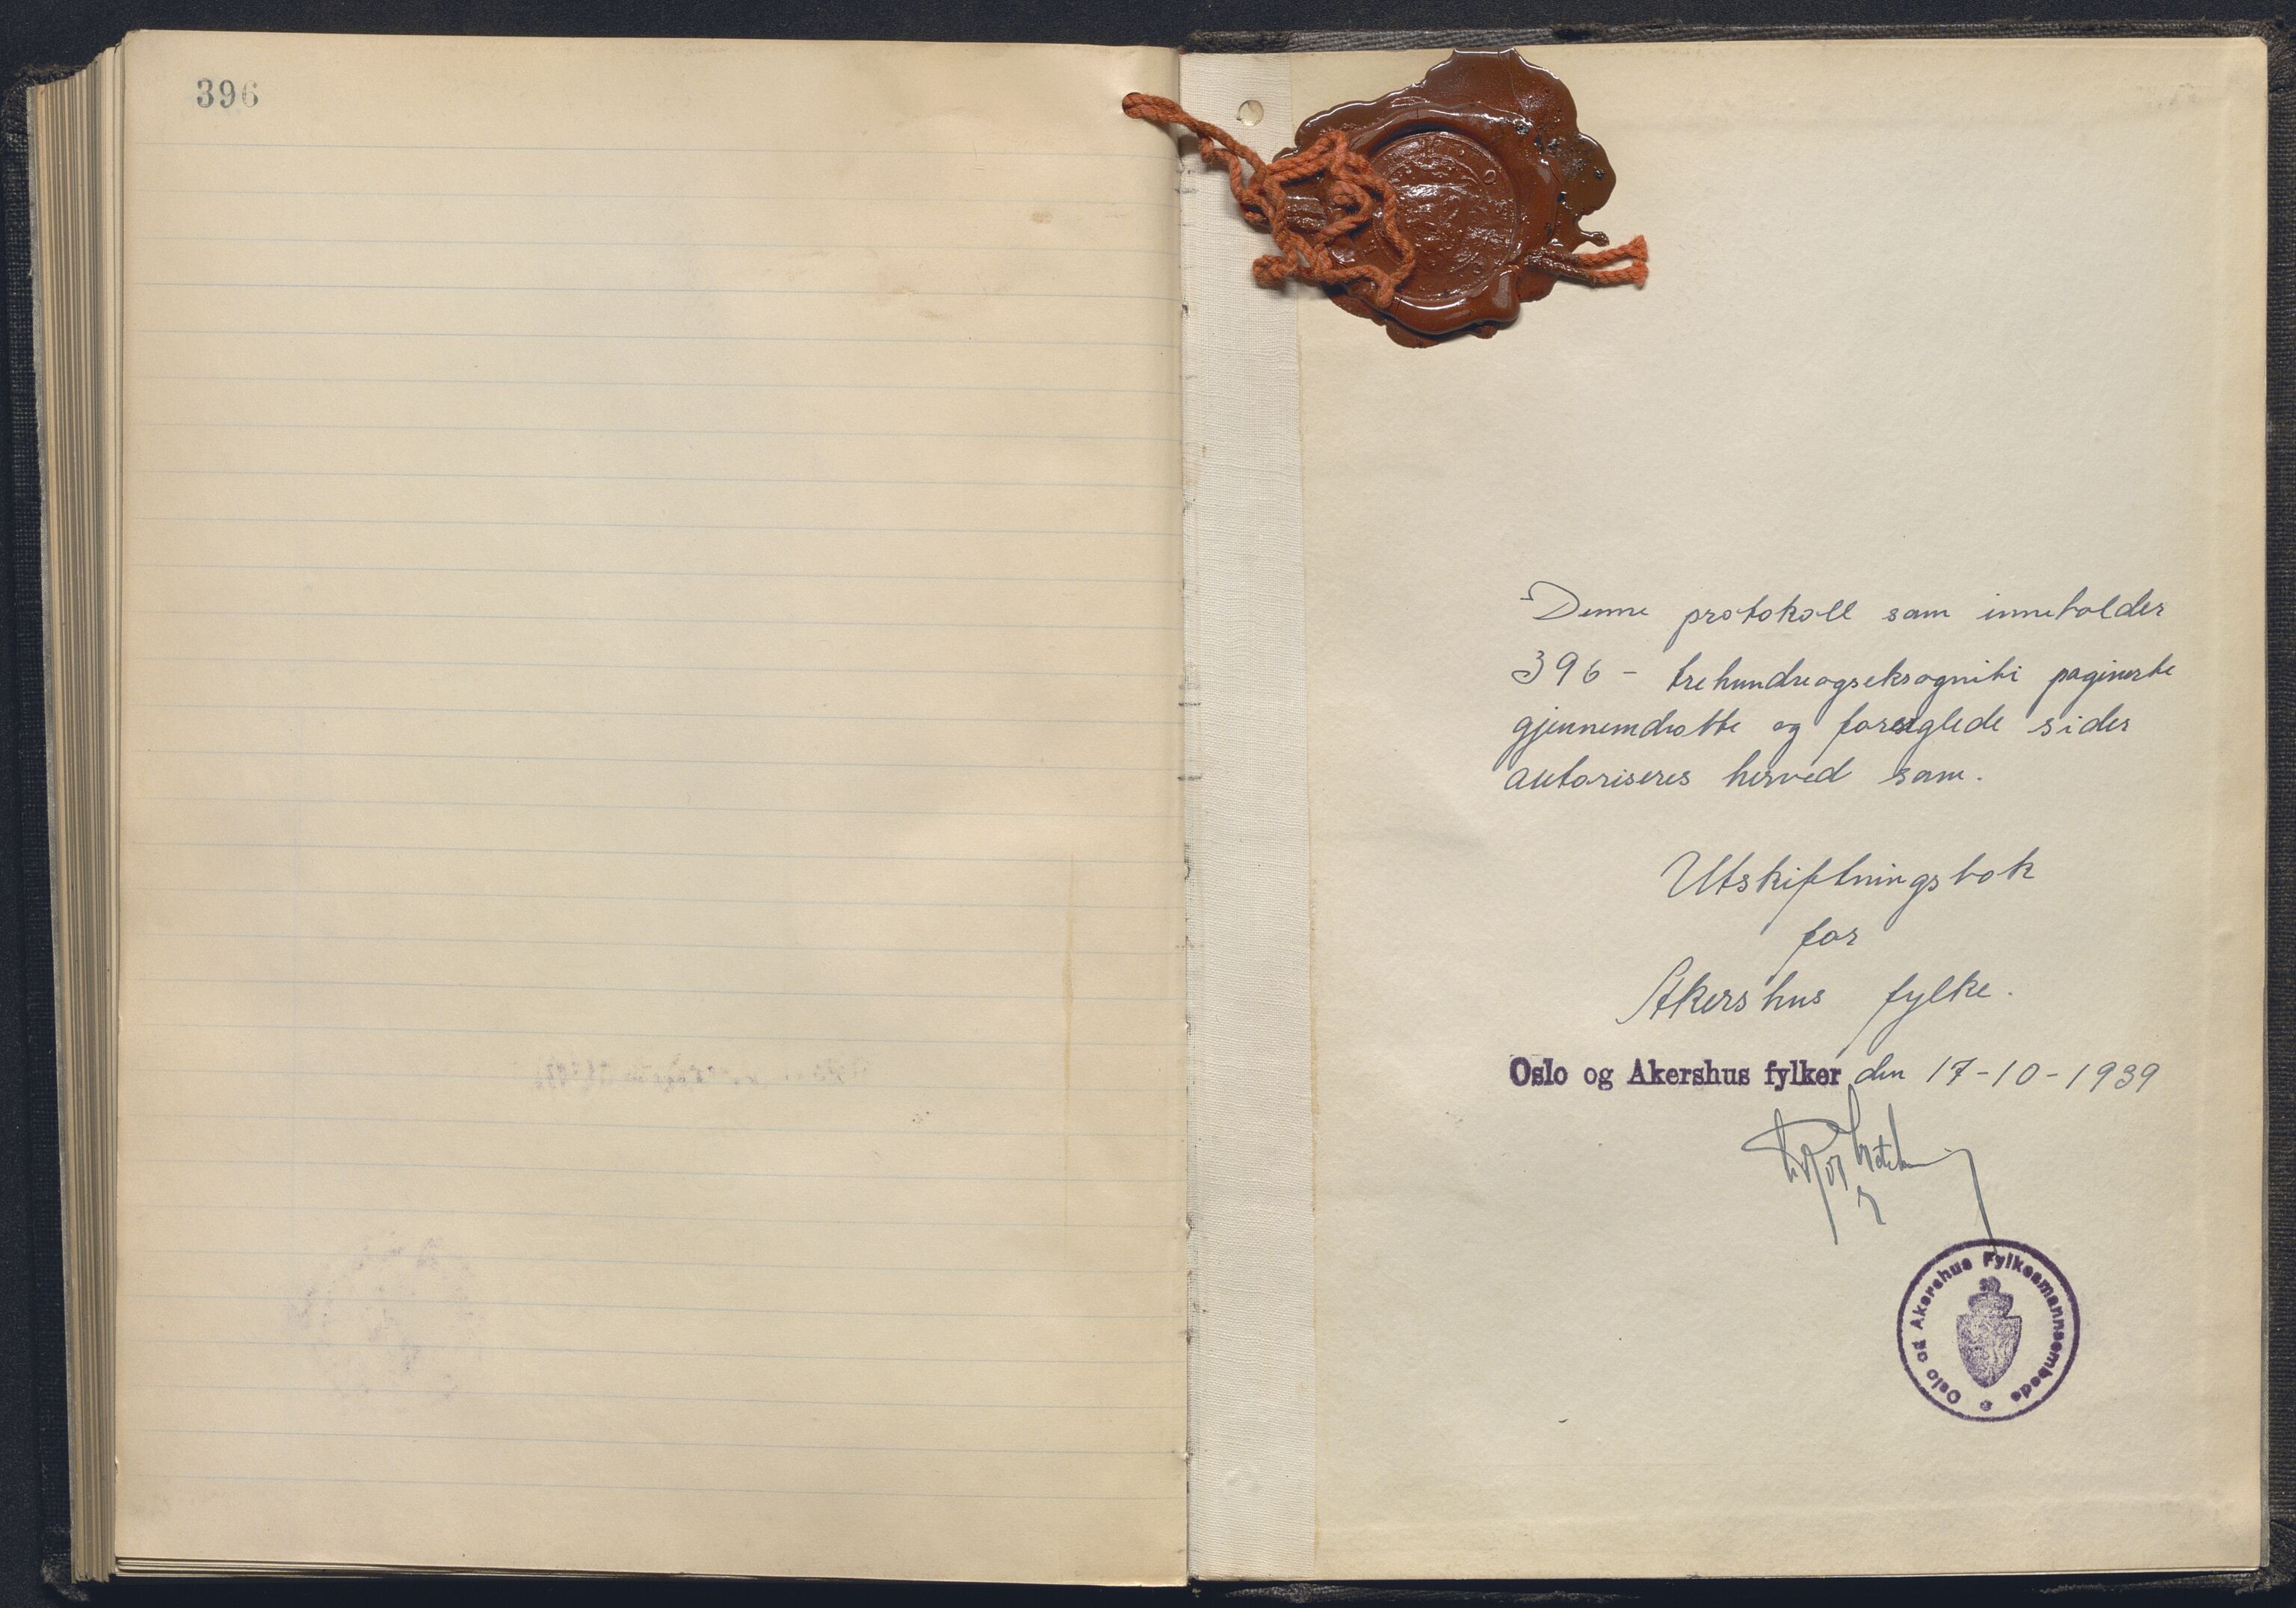 396
Denne protokoll som inneholder
396 - trehundreogseksogniti paginerte
gjennemdrotte og forseglede sider
autoriseres herved som.
Utskiftningsbok
for
Akershus fylke.
Oslo og Akershus fylker den 17-10-1939
Oslo og Akershus Fylkesmannsembede